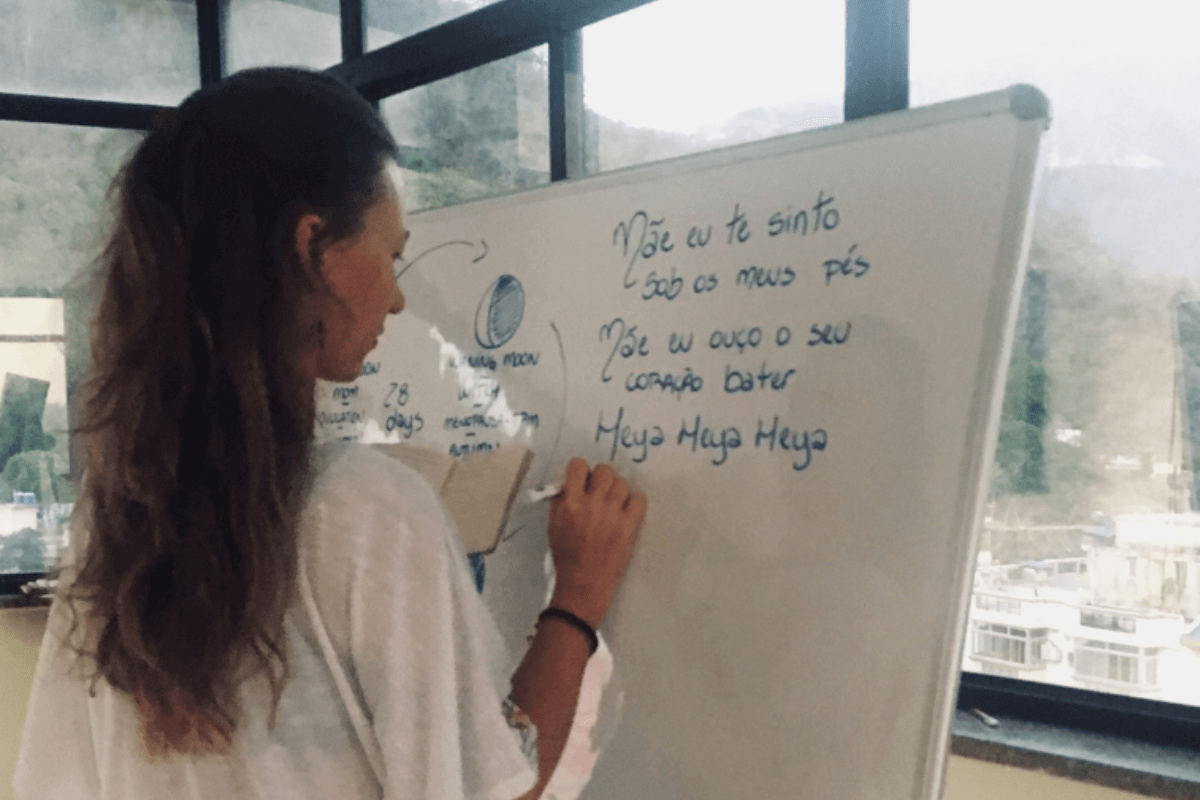 MOM
OVULATION
28
days
WANING MOON
WITCH
AUTUMN
Mãe eu te sinto
sob os meus pés
Mãe eu ouço o seu
coração bater
Heya Heya Heya